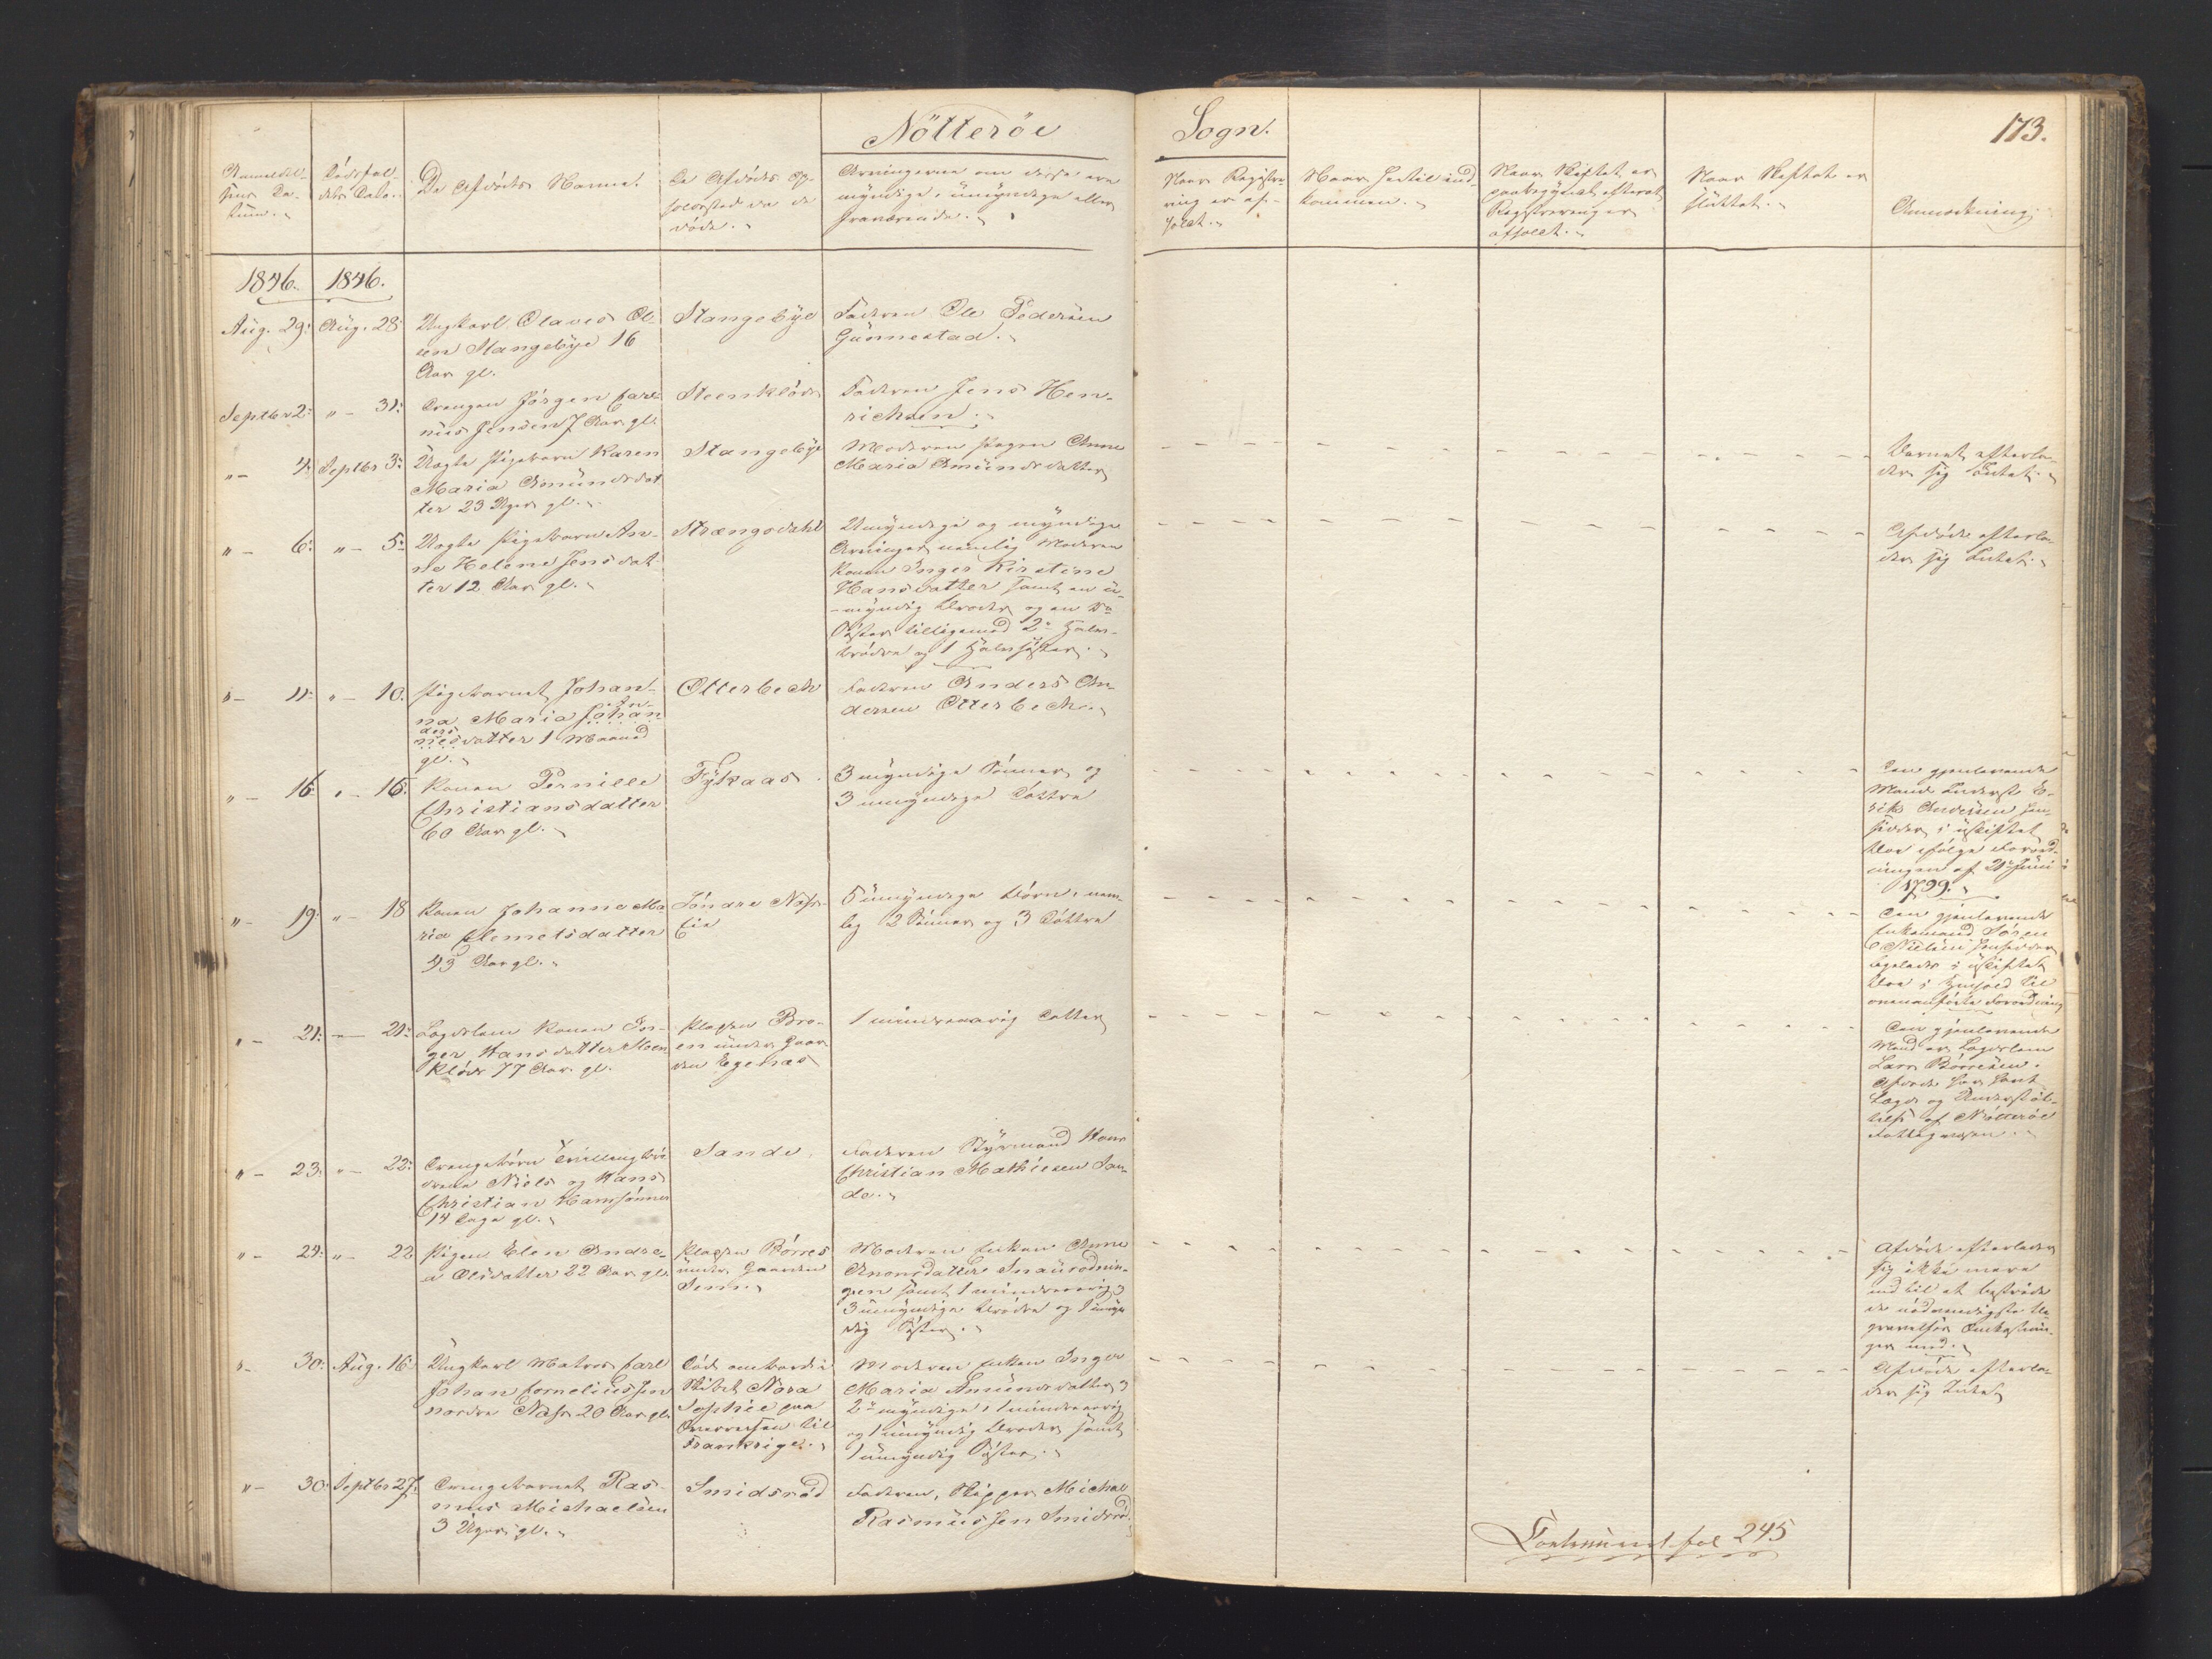 Nötteröe
Sogn.
173.
Anmeldel-
sens Da-
tum.
Dödsfal-
dets Dato.
De Afdödes Navne.
De Afdödes Op-
holdsted da de
döde.
Arvingerne om disse ere
myndige, umyndige eller
fraværende.
Naar Registre-
ring er af-
holdt.
Naar hertil ind-
kommen.
Naar Skiftet er
paabegyndt efterat
Registrering er
afholdt.
Naar Skiftet er
sluttet.
Anmærkning.
1846. 1846.
Aug. 29. Aug. 28.
Ungkarl Olaves Ol-
sen Stangebÿe 16
Aar gl.
Stangebÿe
Faderen Ole Pedersen
Gunnestad.
Septbr 2. " - 31.
Drengen Jörgen Carl-
nius Jensen 7 Aar gl.
Steenklöds
Faderen Jens Hen-
richsen.
" - 4. Septbr 3.
Uægte Pigebarn Karen
Maria Amundsdat
ter 23 Uger gl.
Stangebÿe
Moderen Pigen Anne
Maria Amundsdatter
Barnet efterla-
der sig Intet.
" - 6. " - 5.
Uægte Pigebarn An-
ne Helene Jensdat
ter 12 Aar gl.
Strængsdahl
Umyndige og myndige
Arvinger, nemlig Moderen
Konen Inger Kirstine
Hansdatter samt en u-
myndig Broder og en do
Söster tilligemed 2 Halv-
brödre og 1 Halvsöster.
Afdöde efterla-
der sig Intet.
" - 11. " - 10.
Pigebarnet Johan-
na Maria Johan
An-
ders
nesdatter 1 Maaned
gl.
Otterbech
Faderen Anders An-
dersen Otterbech.
" - 16. " - 15.
Konen Pernille
Christiansdatter
60 Aar gl.
Fÿkaas.
3 myndige Sönner og
3 umyndige Döttre
Den gjenlevende
Mand E-
rik Andersen hen-
sidder i uskiftet
Boe ifölge Forord-
ningen af 21 Juni
1799.
" - 19. " - 18
Konen Johanne Ma
ria Clemetsdatter
43 Aar gl.
Söndre Næs-
bie
5 umyndige Börn, nem-
lig 2 Sönner og 3 Döttre
Den gjenlevende
Enkemand Sören
Nielsen hensidder
ligeledes i uskiftet
Boe i Henhold til
ovenanförte Forordning
" - 21. - 21.
Lægdslem Konen In-
ger Hansdatter Steen
klöds 77 Aar gl.
Pladsen Bro-
en under Gaar
den Egenæs
1 mindreaarig Datter
Den gjenlevende
Mand er Lægdslem
Lars Börresen.
Afdöde har havt
Lægd og Understöt-
telse af Nötteröe
Fattigvæsen.
" - 23. " - 22.
Drengebörn Tvillingbrö
drene Niels og Hans
Christian Hanssönner
14 Dage gl.
Sande.
Faderen Styrmand Hans
Christian Mathiesen San-
de.
" - 24. " - 22
Pigen Elen Andre-
a Olsdatter 22 Aar gl.
Pladsen Börres
under Gaarden
Sem.
Moderen Enken Anne
Knonsdatter Snaurödnin-
gen samt 1 mindreaarig,
3 umyndige Brödre og 1 umyn
dig Söster.
Afdöde efterlader
sig ikke mere
end til at bestride
de nödvendigste Be-
gravelses Omkostnin-
ger med.
" - 30. Aug. 16.
Ungkarl Matros Carl
Johan Corneliussen
nordre Næs 20 Aar gl.
Död ombord i
Skibet Nora
Sophie paa
Overreisen til
Frankrige.
Moderen Enken Inger
Maria Amundsdatter,
2 myndige, 1 mindreaarig
og 1 umyndig Broder samt
1 umyndig Söster.
Afdöde efterla-
der sig Intet
" - 30. Septbr 27.
Drengebarnet Ras-
mus Michaelsen
3 Uger gl.
Smidsröd
Faderen, Skipper Michal
Rasmussen Smidsröd.
Continueret fol 245